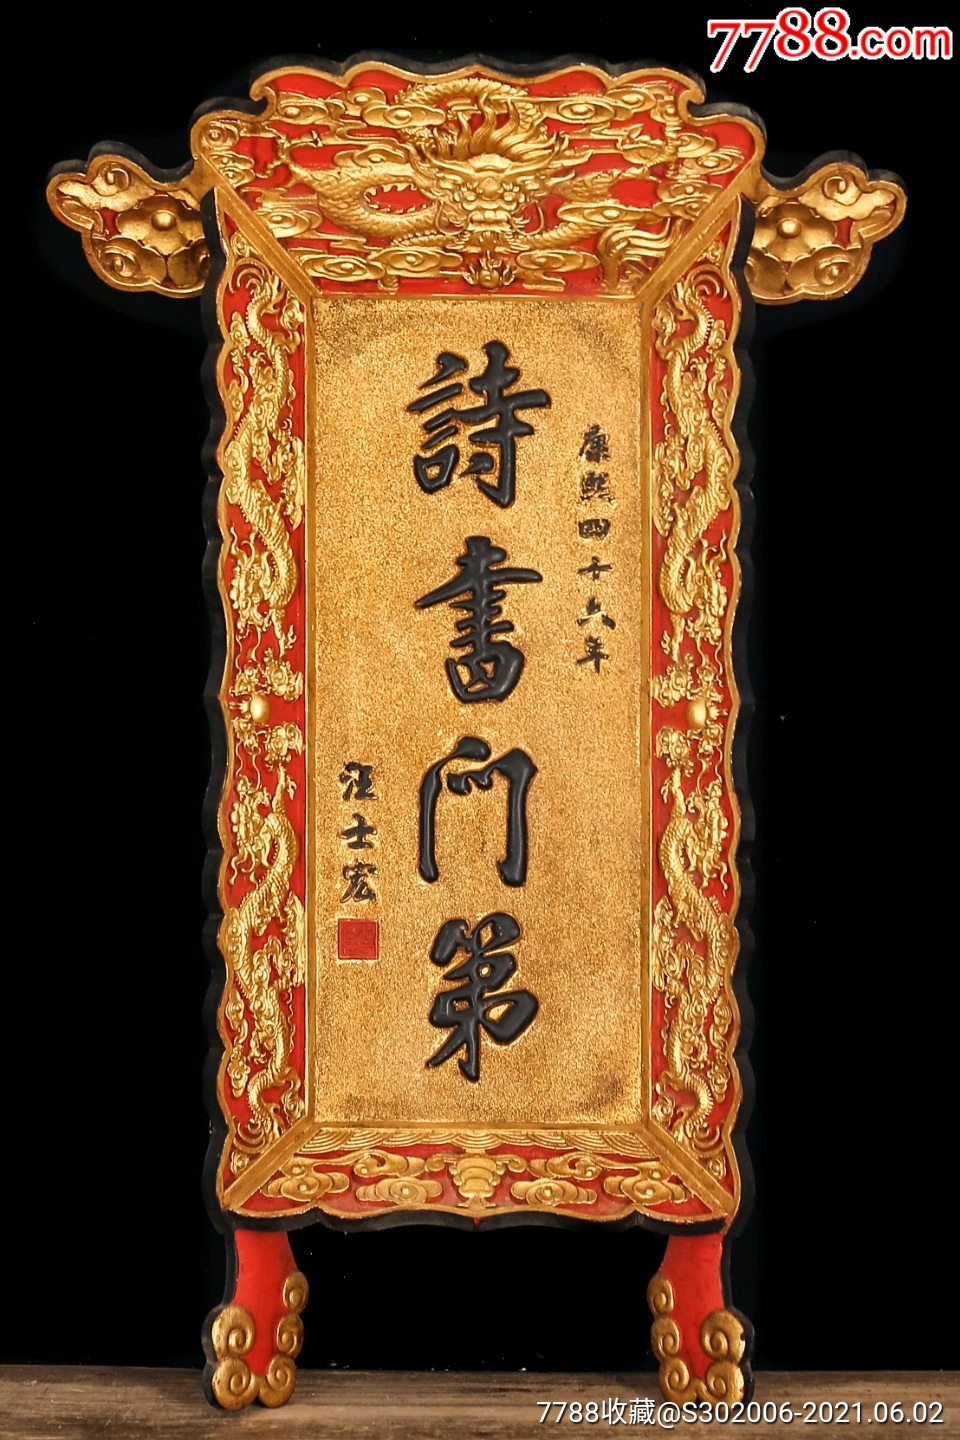 7788.com
康熙四十六年
詩書門第
汪士宏
7788收藏@S302006-2021.06.02